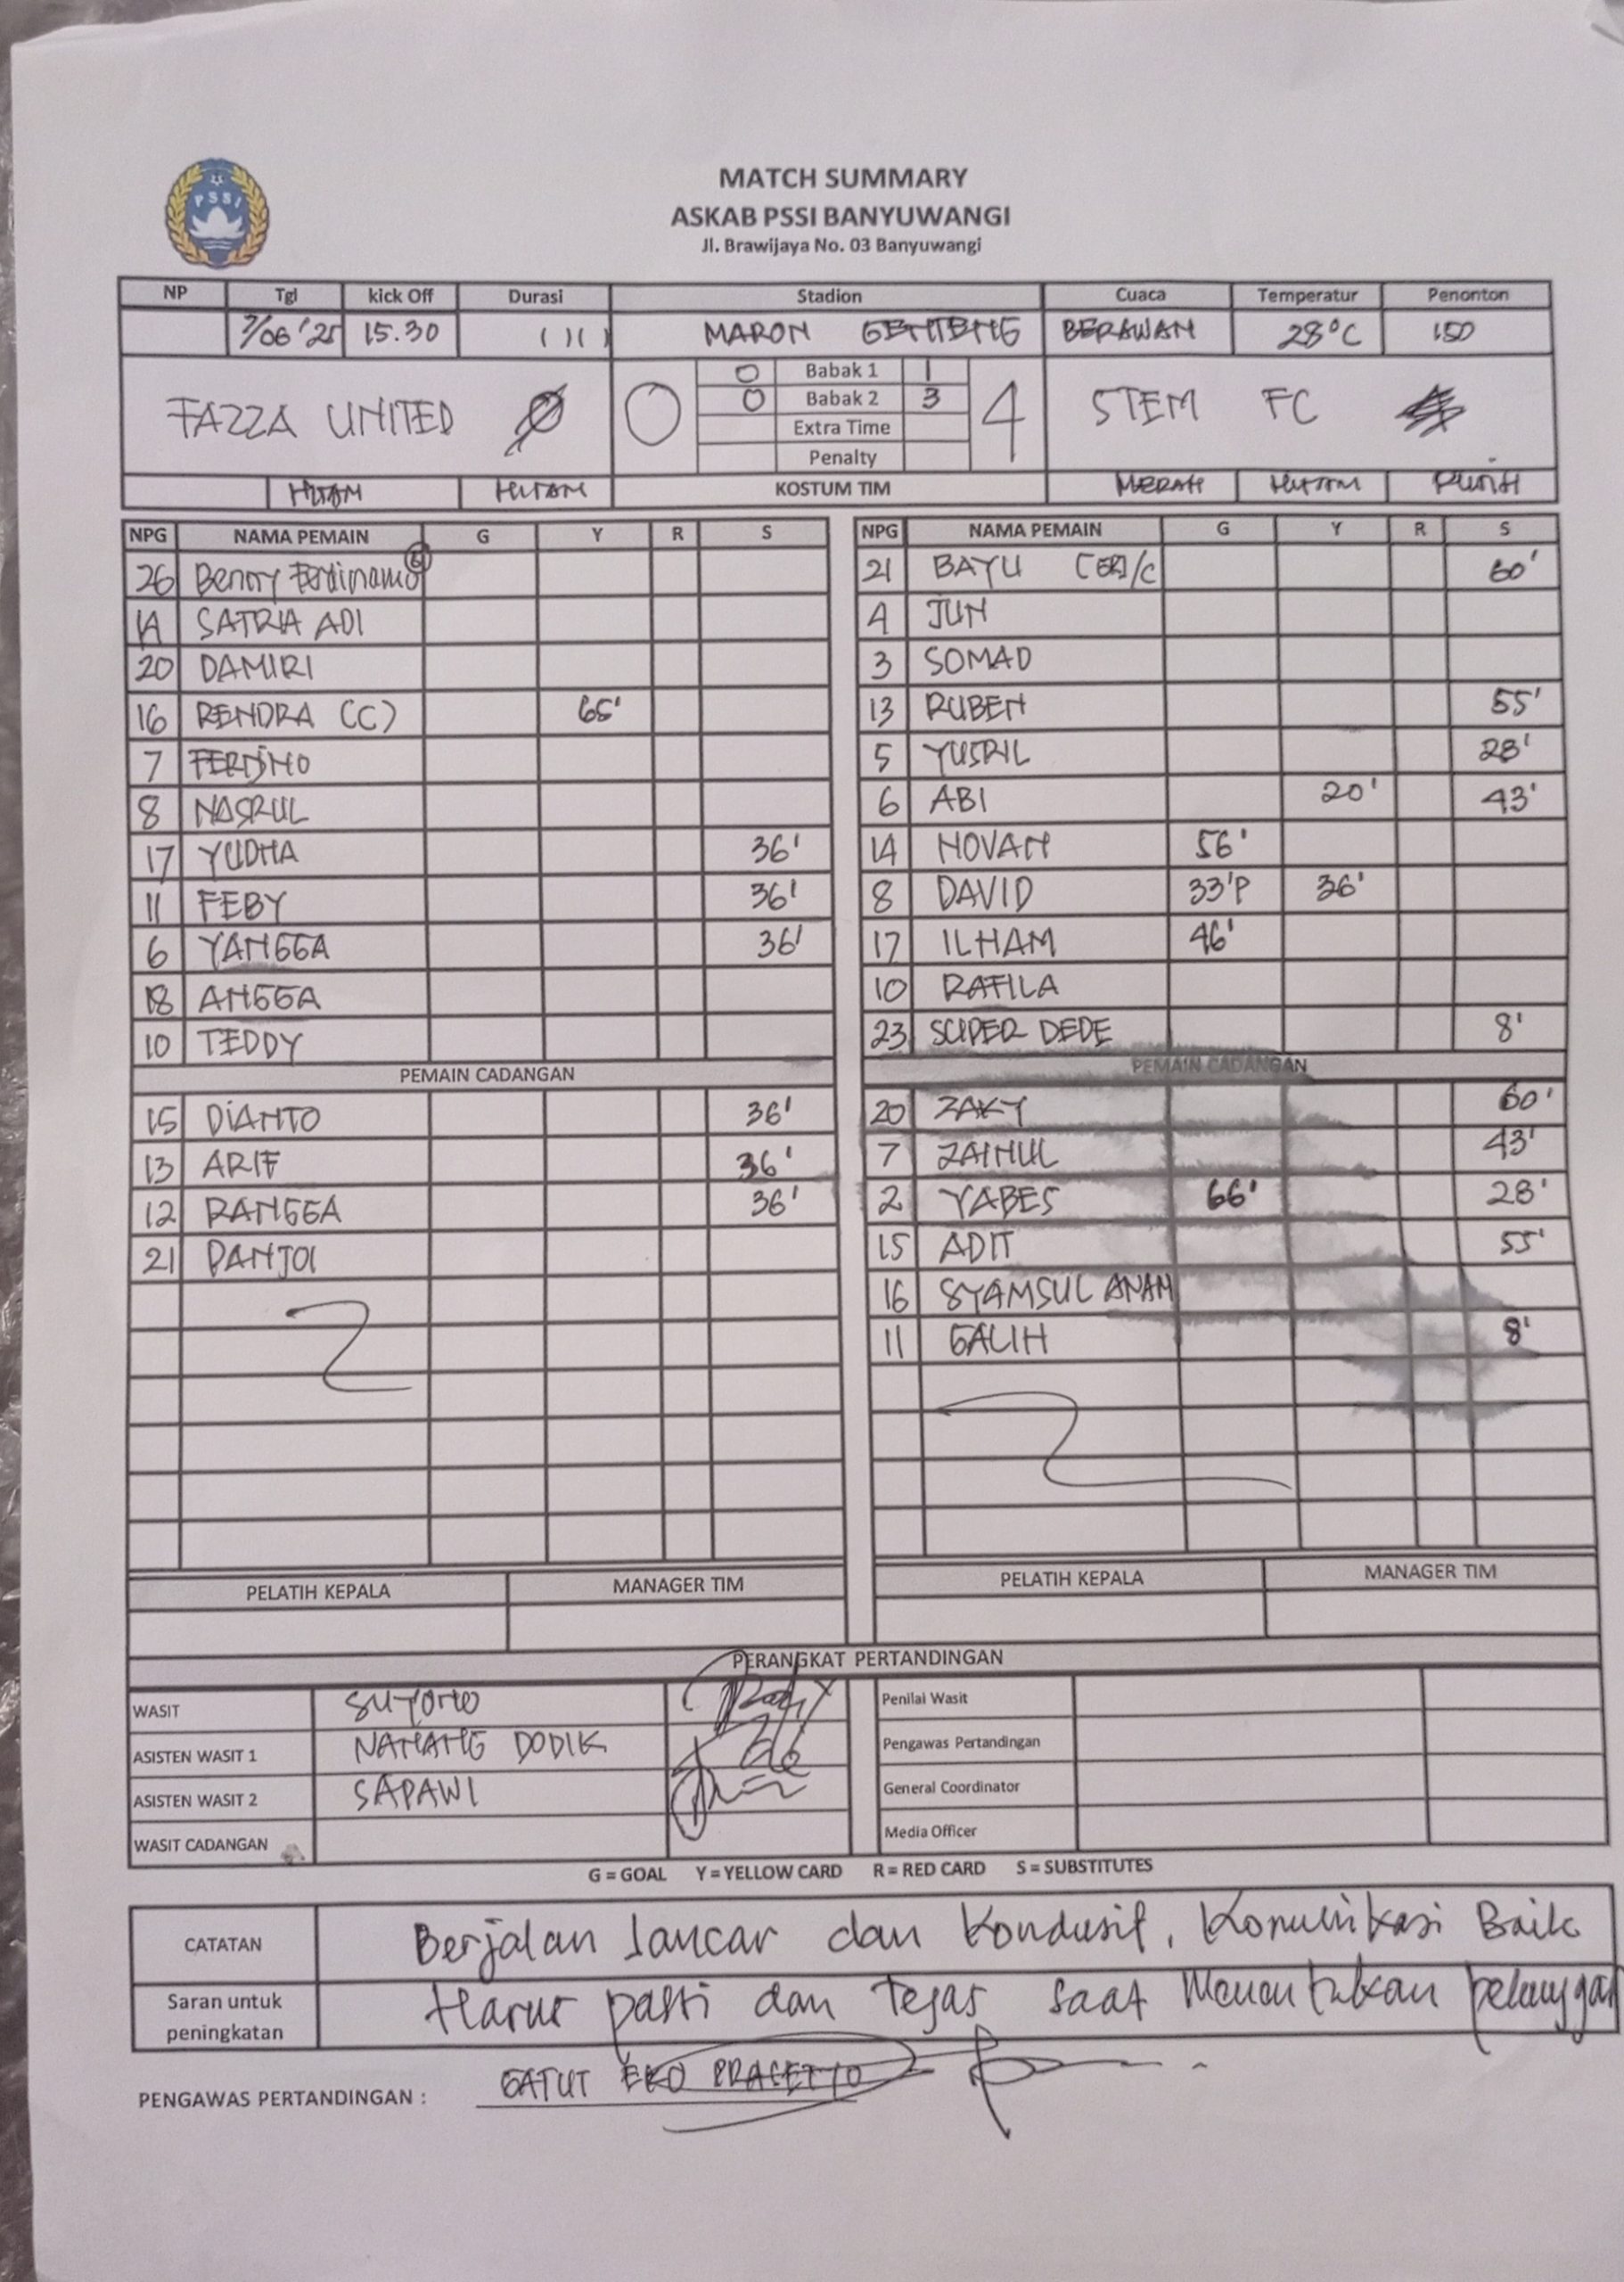 PSSI
MATCH SUMMARY
ASKAB PSSI BANYUWANGI
Jl. Brawijaya No. 03 Banyuwangi
NP Tgl kick Off Durasi Stadion Cuaca Temperatur Penonton
7/06'25 15.30 ( )( ) MARON GENTENG BERAWAN 28°C 150
FAZZA UNITED 0 4 STEM FC
0 Babak 1 1
0 Babak 2 3
Extra Time
Penalty
HITAM HITAM KOSTUM TIM MERAH HITAM PUTIH
NPG NAMA PEMAIN G Y R S NPG NAMA PEMAIN G Y R S
26 Benny Ferdinand 21 BAYU /C 60'
14 SATRIA ADI 4 JUN
20 DAMIRI 3 SOMAD
16 RENDRA (C) 65' 13 RUBEN 55'
7 FERDINO 5 YUSRIL 28'
8 NASRUL 6 ABI 20' 43'
17 YUDHA 36' 14 NOVAN 56'
11 FEBY 36' 8 DAVID 33'P 36'
6 YANGGA 36' 17 ILHAM 46'
18 ANGGA 10 RAFILA
10 TEDDY 23 SUPER DEDE 8'
PEMAIN CADANGAN PEMAIN CADANGAN
15 DIANTO 36' 20 ZAKY 60'
13 ARIF 36' 7 ZAINUL 43'
12 RANGGA 36' 2 YABES 66' 28'
21 PANJOI 15 ADIT 55'
16 SYAMSUL ANAM
11 GALIH 8'
PELATIH KEPALA MANAGER TIM PELATIH KEPALA MANAGER TIM
PERANGKAT PERTANDINGAN
WASIT SUYONO Penilai Wasit
ASISTEN WASIT 1 NANANG DODIK Pengawas Pertandingan
ASISTEN WASIT 2 SAPAWI General Coordinator
WASIT CADANGAN Media Officer
G = GOAL Y = YELLOW CARD R = RED CARD S = SUBSTITUTES
CATATAN Berjalan lancar dan Kondusif, Komunikasi Baik
Saran untuk peningkatan Harus pasti dan Tegas saat Menentukan pelanggar
PENGAWAS PERTANDINGAN : GATUT EKO PRASETYO